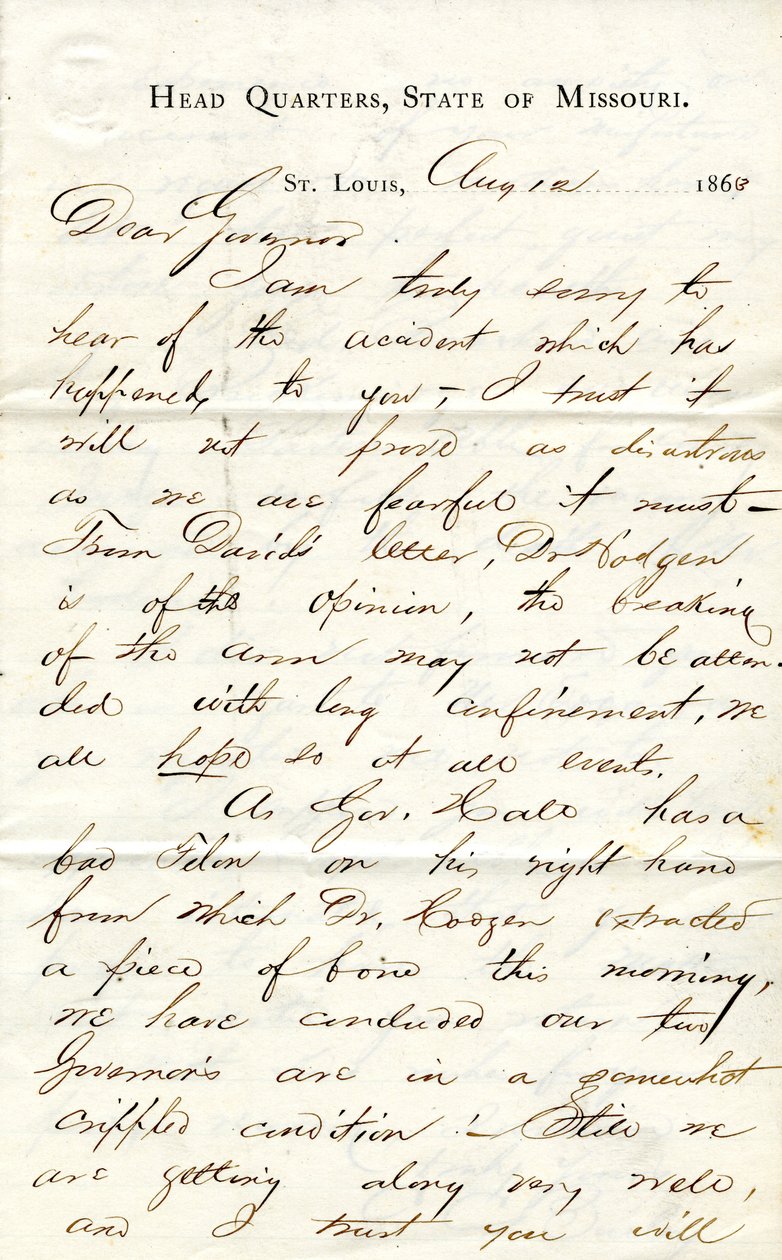 HEAD QUARTERS, STATE OF MISSOURI.
ST. LOUIS, Aug 12 1863
Dear Governor.
I am truly sorry to
hear of the accident which has
happened, to you,- I trust it
will not prove as disastrous
as we are fearful it must-
From David's letter, Dr Hodgen
is of the opinion, the breaking
of the arm may not be atten-
ded with long confinement, we
all hope so at all events.
As Gov. Hall has a
bad Felon on his right hand
from which Dr. Hodgen extracted
a piece of bone this morning,
we have concluded our two
Governor's are in a somewhat
crippled condition!- Still we
are getting along very well,
and I trust you will